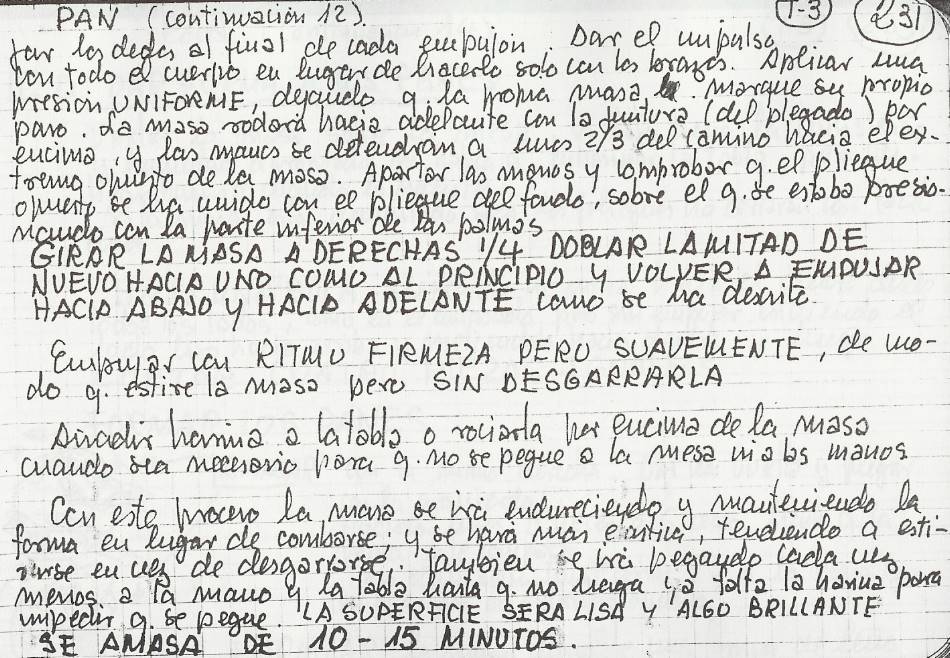 PAN (continuación 12). T-3 231
tar los dedos al final de cada empujón. Dar el impulso
con todo el cuerpo en lugar de hacerlo solo con los brazos. Aplicar una
presión UNIFORME, dejando q. la propia masa marque su propio
paso. La masa rodará hacia adelante con la juntura (del plegado) por
encima, y las manos se detendrán a unos 2/3 del camino hacia el ex-
tremo opuesto de la masa. Apartar las manos y comprobar q. el pliegue
opuesto se ha unido con el pliegue del fondo, sobre el q. se estaba presio-
nando con la parte inferior de las palmas
GIRAR LA MASA A DERECHAS 1/4 DOBLAR LA MITAD DE
NUEVO HACIA UNO COMO AL PRINCIPIO Y VOLVER A EMPUJAR
HACIA ABAJO Y HACIA ADELANTE como se ha descrito
Empujar con RITMO FIRMEZA PERO SUAVEMENTE, de mo-
do q. estire la masa pero SIN DESGARRARLA
Añadir harina a la tabla o rociarla por encima de la masa
cuando sea necesario para q. no se pegue a la mesa ni a las manos
Con este proceso la masa se irá endureciendo y manteniendo la
forma en lugar de combarse; y se hará más elástica, tendiendo a esti-
rarse en vez de desgarrarse. Tambien se irá pegando cada vez
menos a la mano y la tabla hasta q. no haga ya falta la harina para
impedir q. se pegue. LA SUPERFICIE SERA LISA Y ALGO BRILLANTE
SE AMASA DE 10-15 MINUTOS.